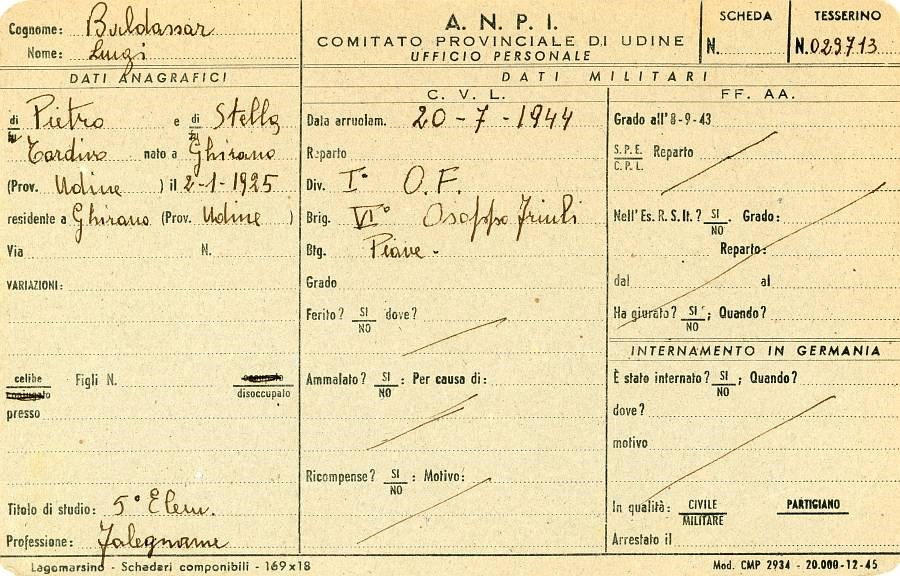 Cognome: Baldassar
Nome: Luigi
A. N. P. I.
COMITATO PROVINCIALE DI UDINE
UFFICIO PERSONALE
SCHEDA
N.
TESSERINO
N. 029713
DATI ANAGRAFICI
di Pietro e di Stella
fu fu
Tardivo nato a Ghirano
(Prov. Udine ) il 2-1-1925
residente a Ghirano (Prov. Udine )
Via N.
VARIAZIONI:
celibe Figli N. occupato
coniugato disoccupato
presso
Titolo di studio: 5° Elem.
Professione: Falegname
DATI MILITARI
C. V. L.
Data arruolam. 20-7-1944
Reparto
Div. I° O.F.
Brig. VI° Osoppo Friuli
Btg. Piave -
Grado
Ferito? SI dove?
NO
Ammalato? SI : Per causa di:
NO
Ricompense? SI : Motivo:
NO
FF. AA.
Grado all'8-9-43
S.P.E. Reparto
C.P.L.
Nell'Es. R. S. It.? SI . Grado:
NO
Reparto:
dal al
Ha giurato? SI ; Quando?
NO
INTERNAMENTO IN GERMANIA
È stato internato? SI ; Quando?
NO
dove?
motivo
In qualità: CIVILE PARTIGIANO
MILITARE
Arrestato il
Lagomarsino - Schedari componibili - 169x18
Mod. CMP 2934 - 20.000-12-45